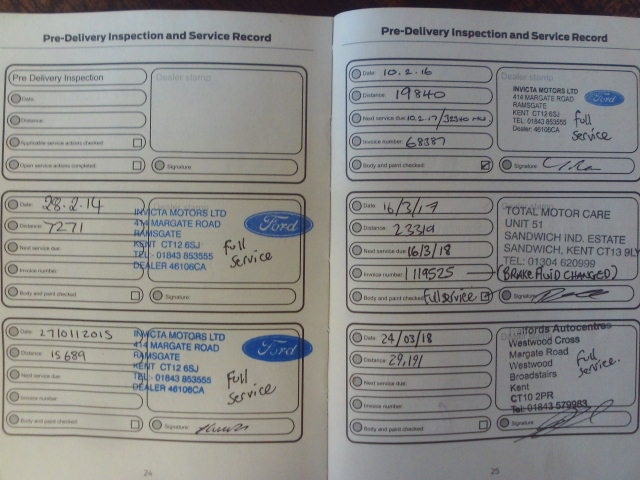 Pre-Delivery Inspection and Service Record
Pre Delivery Inspection
Dealer stamp
Date:
Distance:
Applicable service actions checked
Open service actions completed:
Signature
Date: 28.2.14
Distance: 7271
Next service due:
Invoice number:
Body and paint checked
INVICTA MOTORS LTD
414 MARGATE ROAD
RAMSGATE
KENT CT12 6SJ
TEL:- 01843 853555
DEALER 46106CA
Ford
Full
Service
Signature:
Date: 27/01/2015
Distance: 15689
Next service due:
Invoice number:
Body and paint checked
INVICTA MOTORS LTD
414 MARGATE ROAD
RAMSGATE
KENT CT12 6SJ
TEL:- 01843 853555
DEALER 46106CA
Ford
Full
Service
Signature:
24
Pre-Delivery Inspection and Service Record
Date: 10.2.16
Distance: 19840
Next service due: 10.2.17/
Invoice number: 68387
Body and paint checked
Dealer stamp
INVICTA MOTORS LTD
414 MARGATE ROAD
RAMSGATE
KENT CT12 6SJ
TEL: 01843 853555
Dealer: 46106CA
Ford
Full
Service
Signature:
Date: 16/3/17
Distance: 23319
Next service due: 16/3/18
Invoice number: 1119525
Body and paint checked full service
TOTAL MOTOR CARE
UNIT 51
SANDWICH IND. ESTATE
SANDWICH, KENT CT13 9LY
TEL: 01304 620999
(BRAKE FLUID CHANGED)
Signature:
Date: 24/03/18
Distance: 29,191
Next service due:
Invoice number:
Body and paint checked
lfords Autocentres
Westwood Cross
Margate Road
Westwood
Broadstairs
Kent
CT10 2PR
Tel: 01843 579983
Full
Service.
Signature:
25